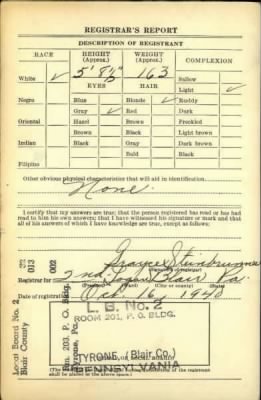 REGISTRAR'S REPORT
DESCRIPTION OF REGISTRANT
RACE HEIGHT (Approx.) WEIGHT (Approx.) COMPLEXION
White ✓ 5' 8½" 163 Sallow
EYES HAIR Light ✓
Negro Blue Blonde ✓ Ruddy
Gray ✓ Red Dark
Oriental Hazel Brown Freckled
Brown Black Light brown
Indian Black Gray Dark brown
Bald Black
Filipino
Other obvious physical characteristics that will aid in identification
None.
I certify that my answers are true; that the person registered has read or has had
read to him his own answers; that I have witnessed his signature or mark and that
all of his answers of which I have knowledge are true, except as follows:
Grayce
(Signature of registrar)
Registrar for 2nd Logan Blair Pa.
(City or county) (State)
Date of registration Oct. 16, 1940
Local Board No. 2
Blair County
32
013
002
Rm. 203, P. O. Bldg.
Tyrone, Pa.
L. B. No. 2
ROOM 201, P. O. BLDG.
TYRONE, (Blair Co.)
PENNSYLVANIA
shall be placed in the above space.)